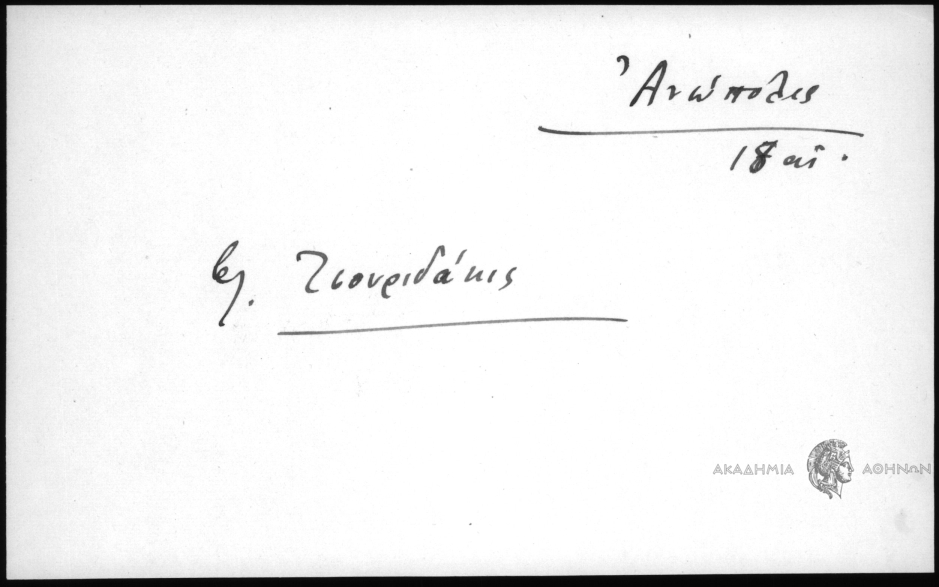 Ἀνώπολις
18 αἰ.
βλ. Τσουριδάκις
ΑΚΑΔΗΜΙΑ ΑΘΗΝΩΝ